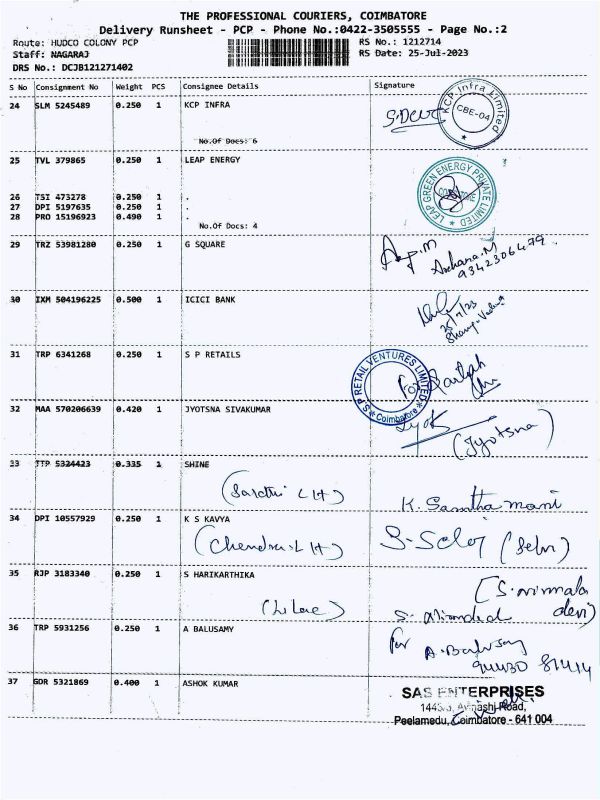 THE PROFESSIONAL COURIERS, COIMBATORE
Delivery Runsheet - PCP - Phone No.:0422-3505555 - Page No.:2
Route: HUDCO COLONY PCP
Staff: NAGARAJ
DRS No.: DCJB121271402
RS No.: 1212714
RS Date: 25-Jul-2023
S No Consignment No Weight PCS Consignee Details Signature
24 SLM 5245489 0.250 1 KCP INFRA
No.Of Docs: 6
KCP Infra Limited
CBE-04
25 TVL 379865 0.250 1 LEAP ENERGY
26 TSI 473278 0.250 1 .
27 DPI 5197635 0.250 1 .
28 PRO 15196923 0.490 1 .
No.Of Docs: 4
LEAP GREEN ENERGY PRIVATE LIMITED
29 TRZ 53981280 0.250 1 G SQUARE
Archana.M
9342306479
30 IXM 504196225 0.500 1 ICICI BANK
25/7/23
31 TRP 6341268 0.250 1 S P RETAILS
S P RETAIL VENTURES LIMITED
Coimbatore
For
32 MAA 570206639 0.420 1 JYOTSNA SIVAKUMAR
(Jyotsna)
33 TTP 5324423 0.335 1 SHINE
K. Santha mani
34 DPI 10557929 0.250 1 K S KAVYA
(Selvi)
35 RJP 3183340 0.250 1 S HARIKARTHIKA
(S. nirmala devi)
36 TRP 5931256 0.250 1 A BALUSAMY
For
A. Balusamy
37 GDR 5321869 0.400 1 ASHOK KUMAR
SAS ENTERPRISES
Avinashi Road,
Peelamedu, Coimbatore - 641 004